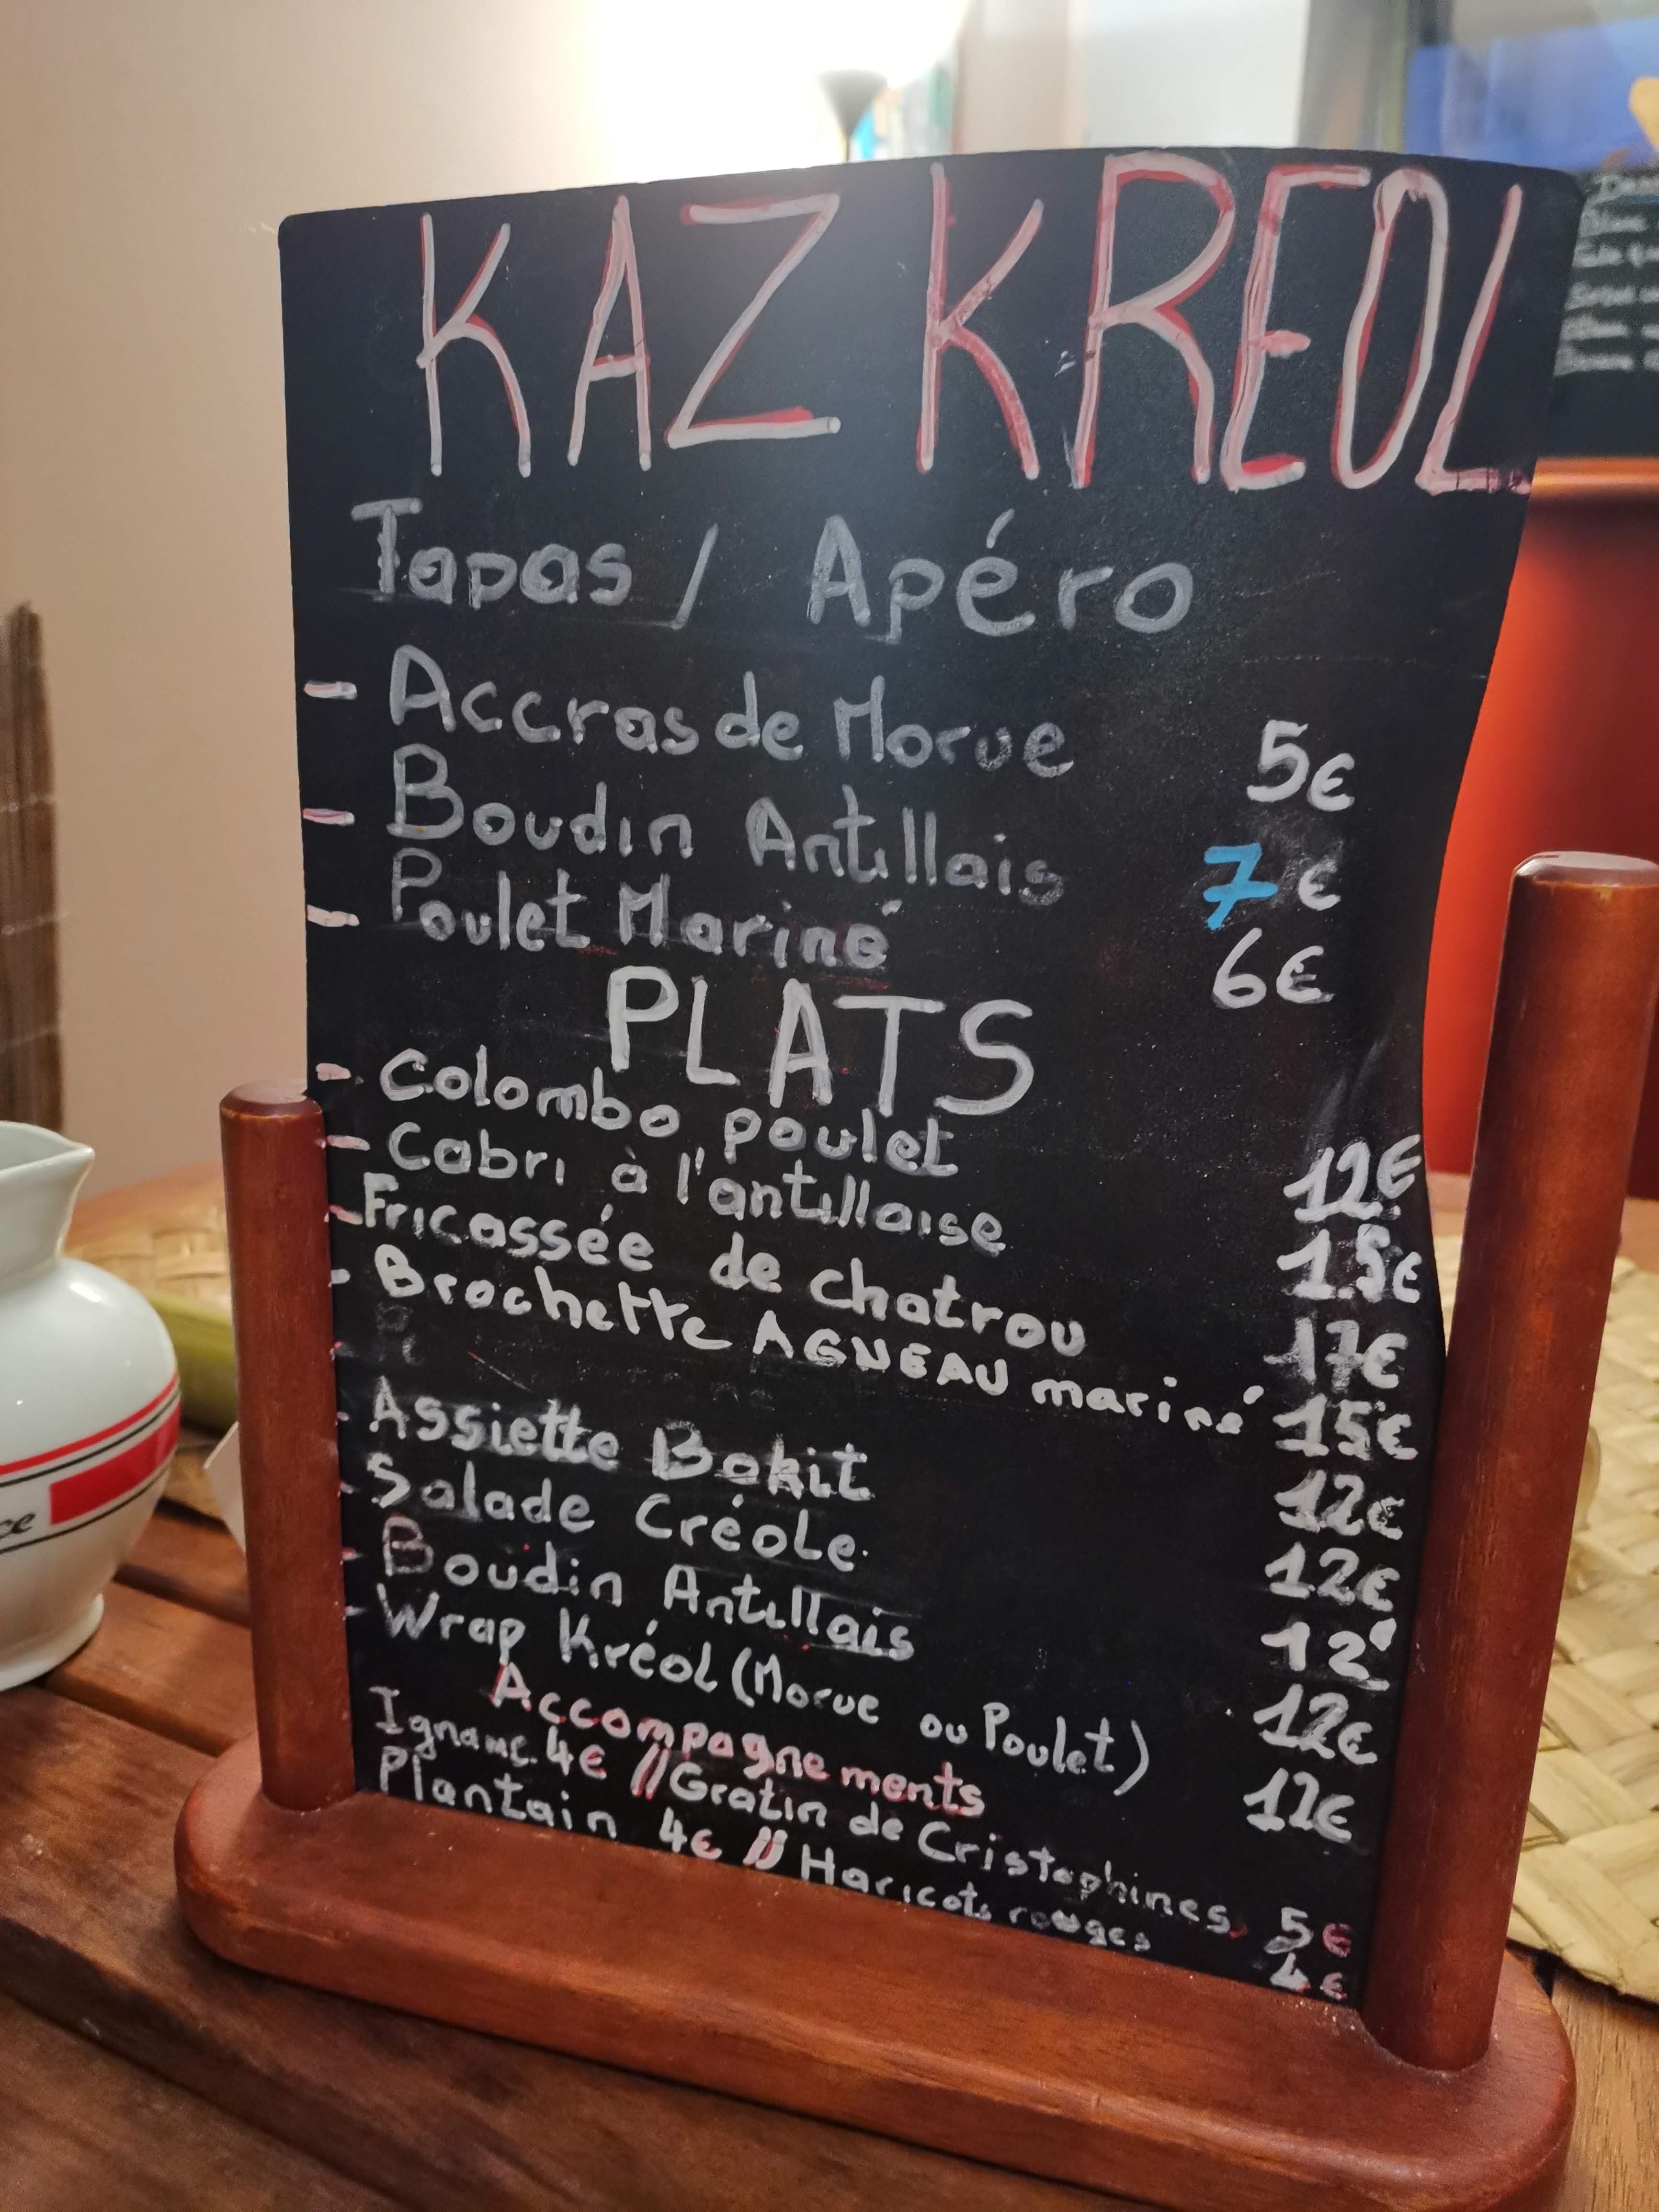 KAZ KREOL
Tapas / Apéro
- Accras de Morue 5€
- Boudin Antillais 7€
- Poulet Mariné 6€
PLATS
- Colombo poulet 12€
- Cabri à l'antillaise 15€
- Fricassée de chatrou 17€
- Brochette AGNEAU mariné 15€
- 12€
- Assiette Bokit 12€
- Salade Créole. 12€
- Boudin Antillais 12€
- Wrap Kréol (Morue ou Poulet) 12€
Accompagnements
Igname. 4€ // Gratin de Cristophines 5€
Plantain 4€ // Haricots rouges 4€